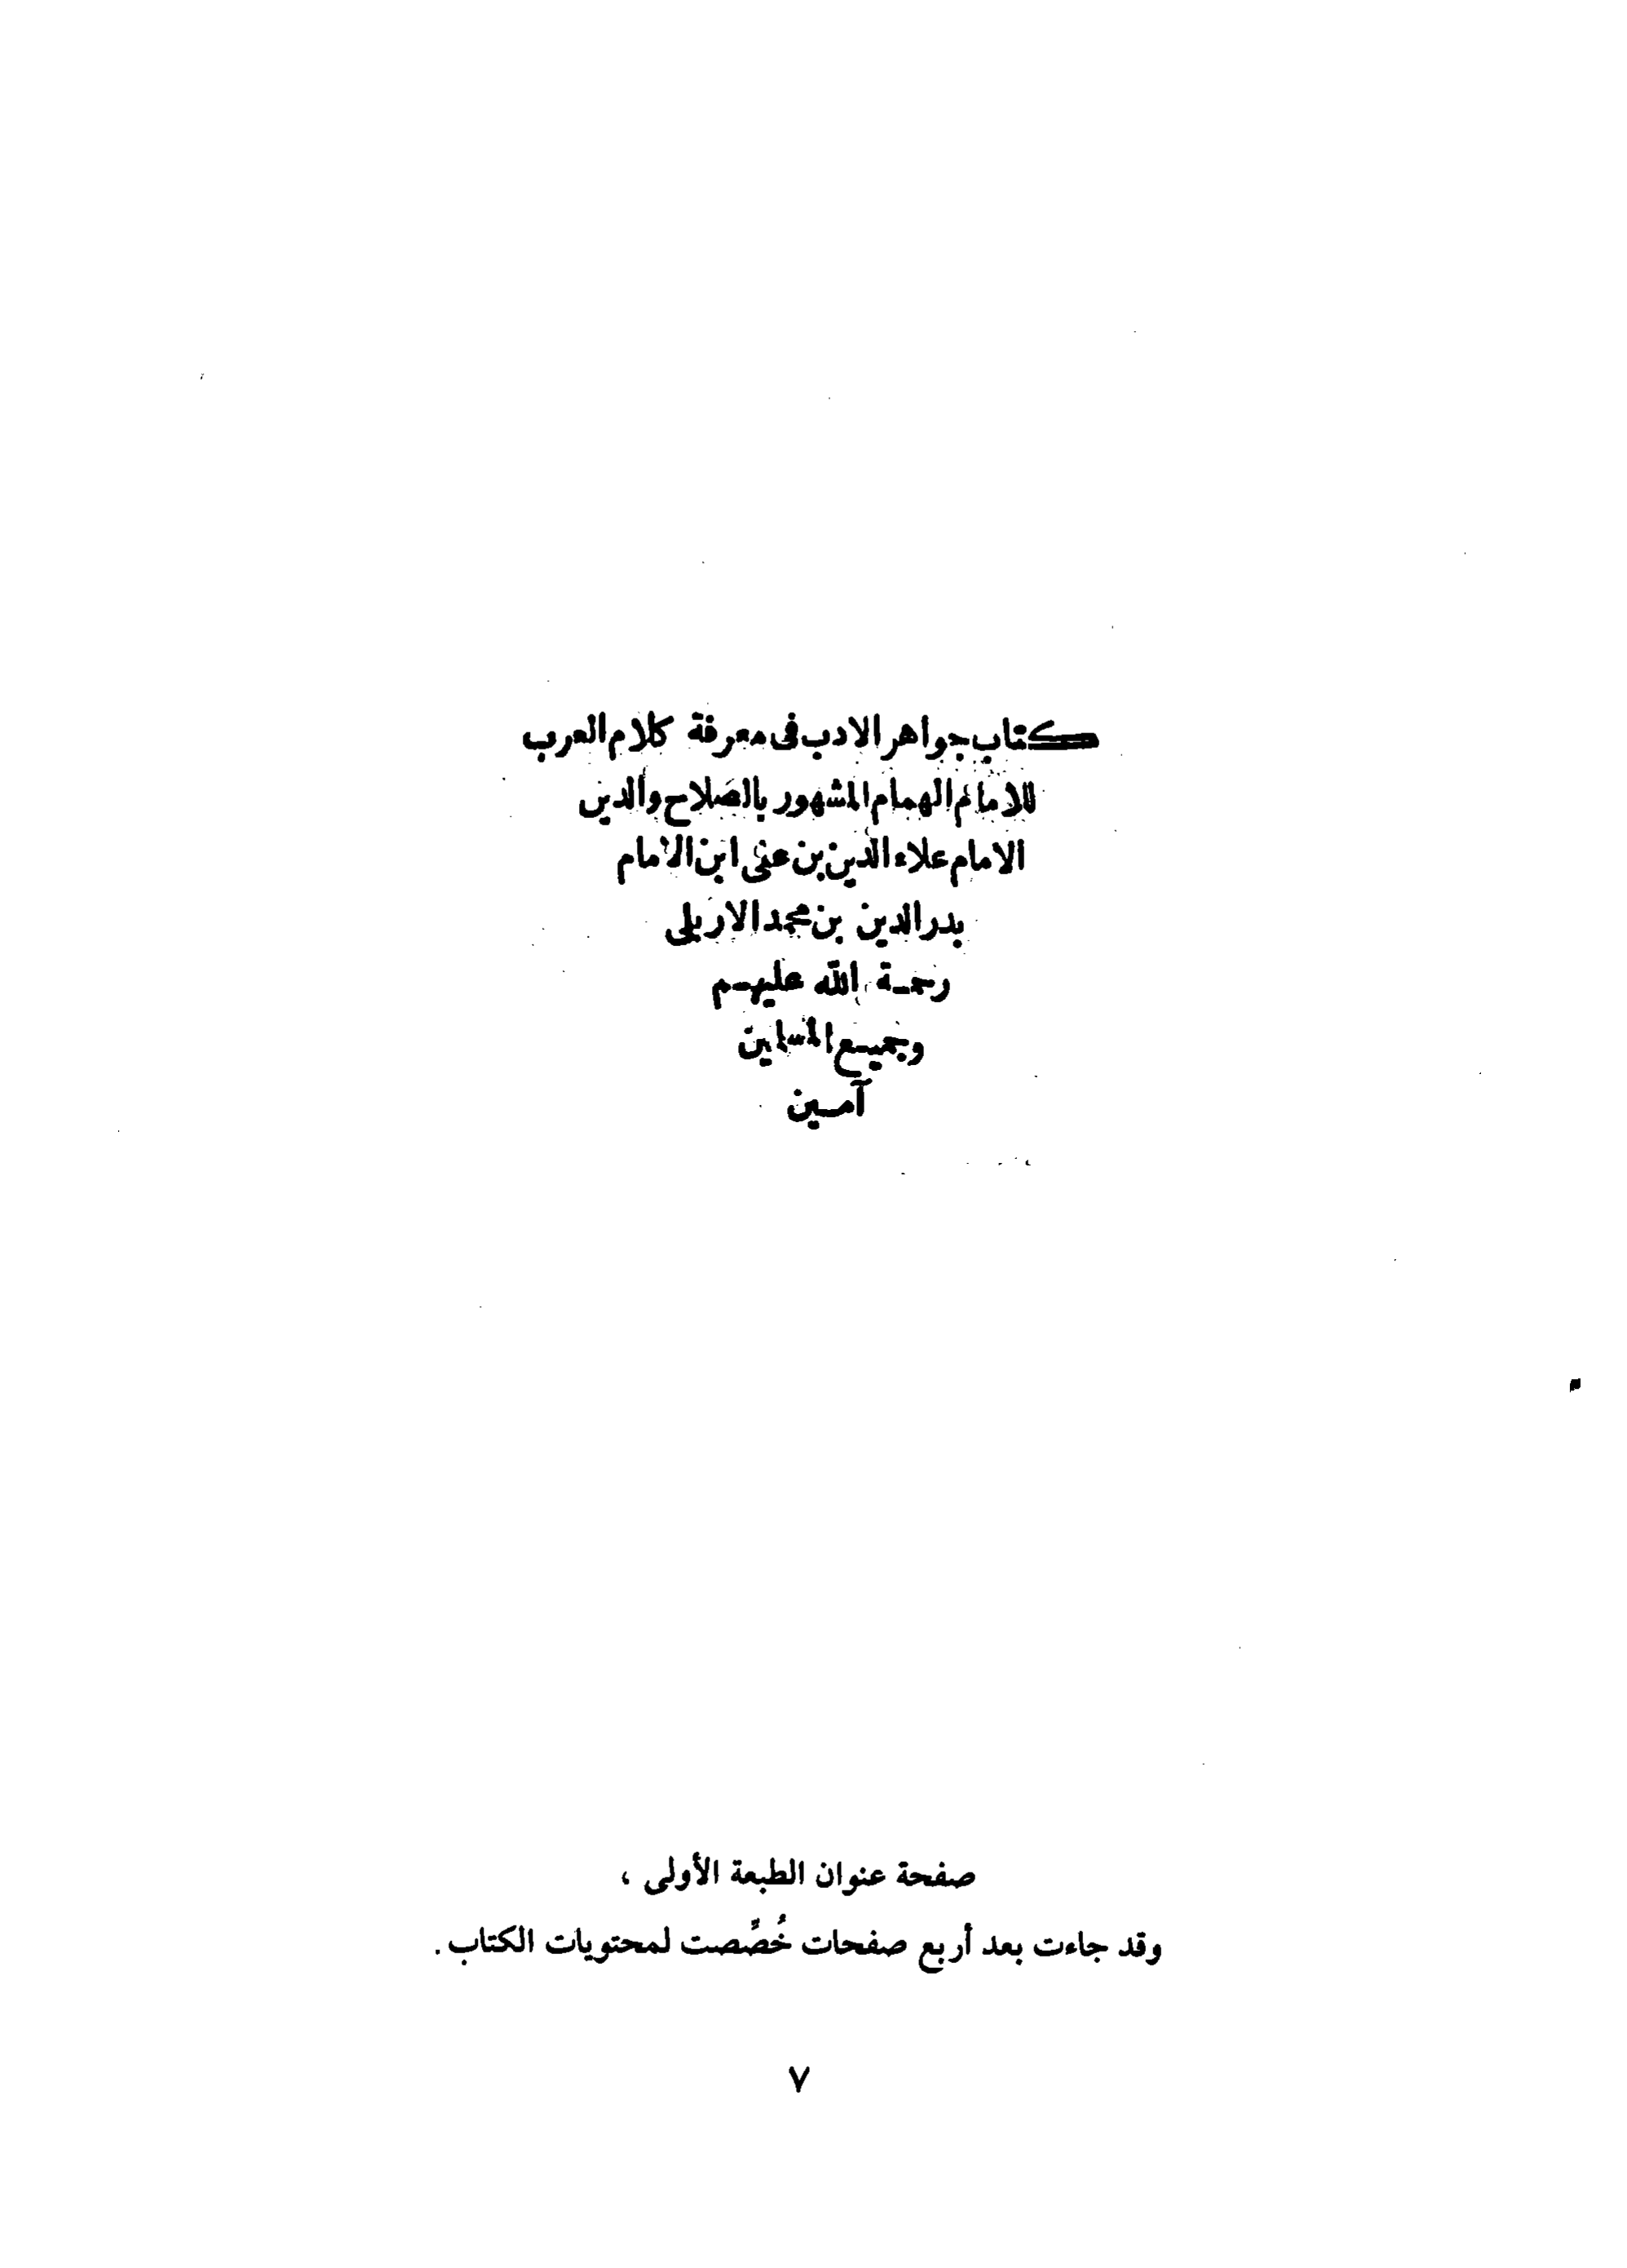 كتاب جواهر الادب فى معرفة كلام العرب
للامام الهمام المشهور بالصلاح والدين
الامام علاء الدين بن على ابن الامام
بدر الدين بن محمد الاربلى
رحمة الله عليهم
وجميع المسلمين
آمين
صفحة عنوان الطبعة الأولى ،
وقد جاءت بعد أربع صفحات خُصِّصت لمحتويات الكتاب .
٧